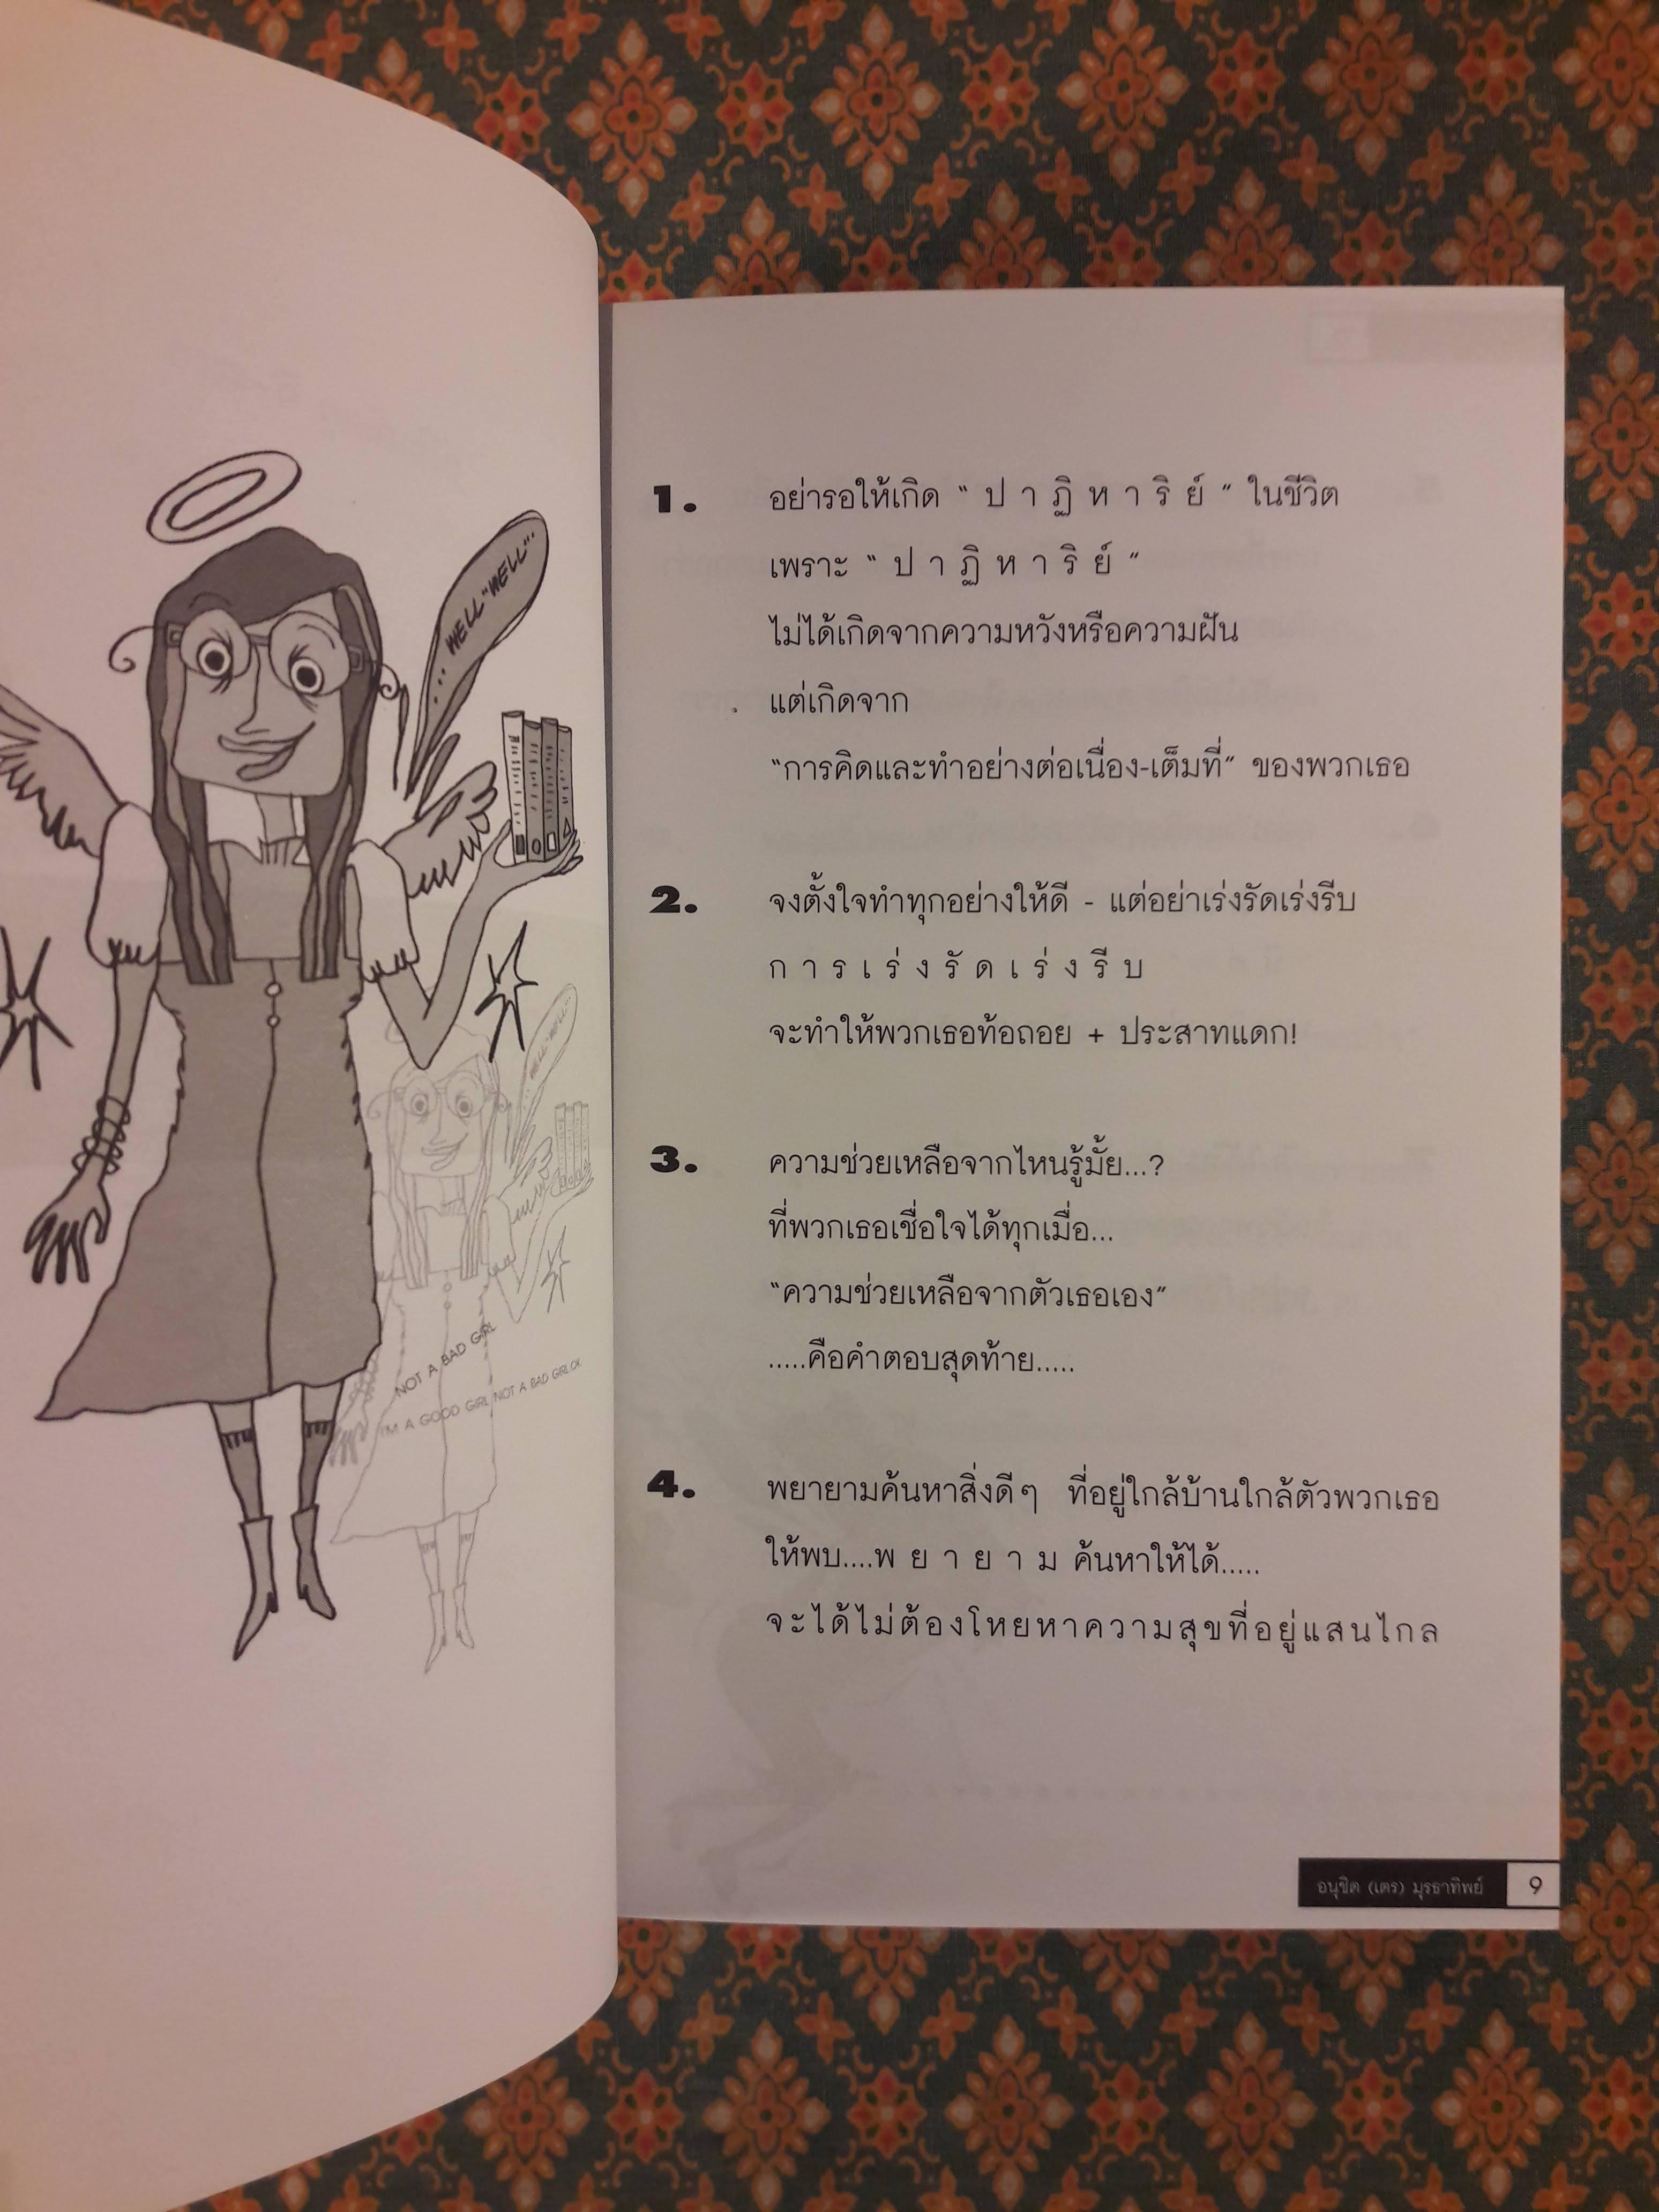 ... WELL...WELL...
NOT A BAD GIRL
I'M A GOOD GIRL NOT A BAD GIRL OK
1. อย่ารอให้เกิด “ ป า ฏิ ห า ริ ย์ ” ในชีวิต
เพราะ “ ป า ฏิ ห า ริ ย์ ”
ไม่ได้เกิดจากความหวังหรือความฝัน
แต่เกิดจาก
“การคิดและทำอย่างต่อเนื่อง-เต็มที่” ของพวกเธอ
2. จงตั้งใจทำทุกอย่างให้ดี - แต่อย่าเร่งรัดเร่งรีบ
ก า ร เ ร่ ง รั ด เ ร่ ง รี บ
จะทำให้พวกเธอท้อถอย + ประสาทแดก!
3. ความช่วยเหลือจากไหนรู้มั้ย...?
ที่พวกเธอเชื่อใจได้ทุกเมื่อ...
“ความช่วยเหลือจากตัวเธอเอง”
.....คือคำตอบสุดท้าย.....
4. พยายามค้นหาสิ่งดีๆ ที่อยู่ใกล้บ้านใกล้ตัวพวกเธอ
ให้พบ....พ ย า ย า ม ค้นหาให้ได้.....
จ ะ ไ ด้ ไ ม่ ต้ อ ง โ ห ย ห า ค ว า ม สุ ข ที่ อ ยู่ แ ส น ไ ก ล
อนุชิต (เตร) มุรธาทิพย์ 9